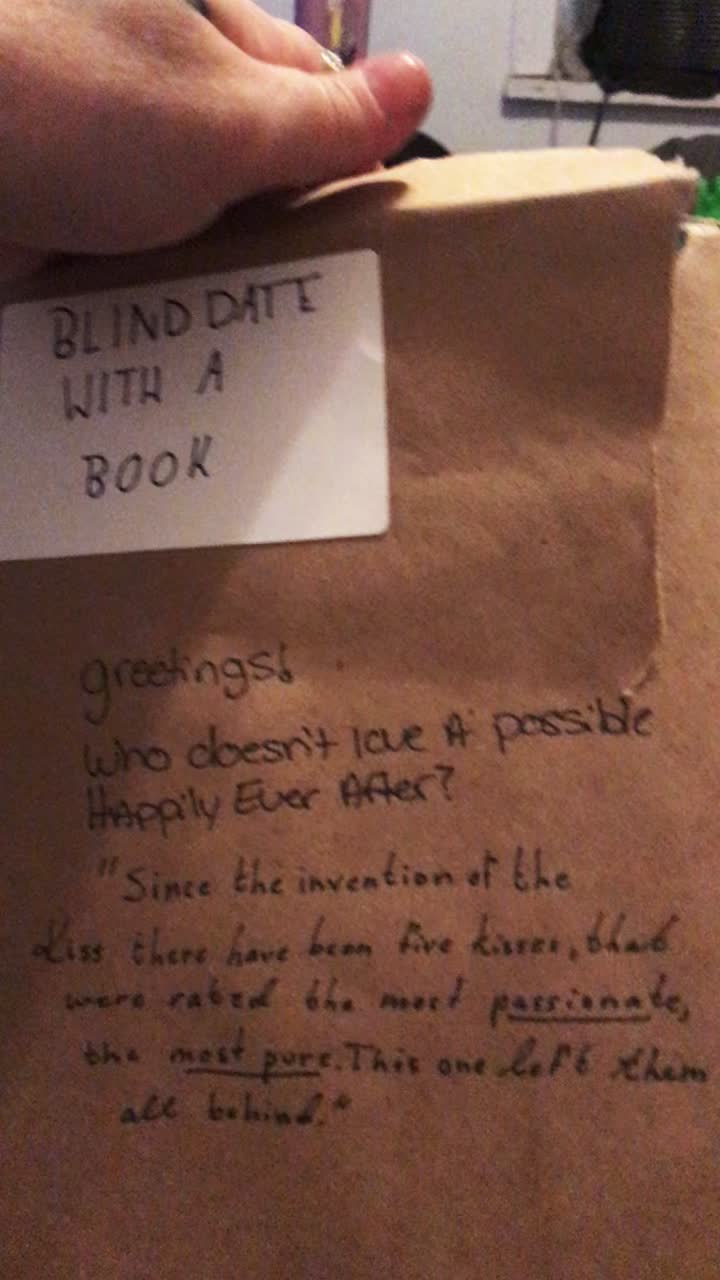 BLIND DATE
WITH A
BOOK
greetings!
Who doesn't love A possible
HAppily Ever After?
"Since the invention of the
kiss there have been five kisses, that
were rated the most passionate,
the most pure. This one left them
all behind."